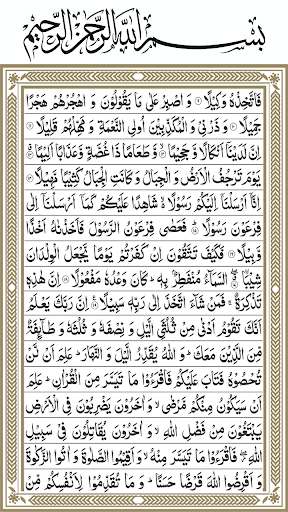 بسم الله الرحمن الرحيم
فَاتَّخِذْهُ وَكِيْلًا ۞ وَ اصْبِرْ عَلٰى مَا يَقُوْلُوْنَ وَ اهْجُرْهُمْ هَجْرًا
جَمِيْلًا ۞ وَ ذَرْنِيْ وَ الْمُكَذِّبِيْنَ اُولِي النَّعْمَةِ وَ مَهِّلْهُمْ قَلِيْلًا ۞
اِنَّ لَدَيْنَاۤ اَنْكَالًا وَّ جَحِيْمًا ۞ وَّ طَعَامًا ذَا غُصَّةٍ وَّ عَذَابًا اَلِيْمًا ۞
يَوْمَ تَرْجُفُ الْاَرْضُ وَ الْجِبَالُ وَ كَانَتِ الْجِبَالُ كَثِيْبًا مَّهِيْلًا ۞
اِنَّاۤ اَرْسَلْنَاۤ اِلَيْكُمْ رَسُوْلًا ۙ شَاهِدًا عَلَيْكُمْ كَمَاۤ اَرْسَلْنَاۤ اِلٰى
فِرْعَوْنَ رَسُوْلًا ۞ فَعَصٰى فِرْعَوْنُ الرَّسُوْلَ فَاَخَذْنٰهُ اَخْذًا
وَّبِيْلًا ۞ فَكَيْفَ تَتَّقُوْنَ اِنْ كَفَرْتُمْ يَوْمًا يَّجْعَلُ الْوِلْدَانَ
شِيْبًا ۞ السَّمَآءُ مُنْفَطِرٌۢ بِهٖ ؕ كَانَ وَعْدُهٗ مَفْعُوْلًا ۞ اِنَّ هٰذِهٖ
تَذْكِرَةٌ ۚ فَمَنْ شَآءَ اتَّخَذَ اِلٰى رَبِّهٖ سَبِيْلًا ۞ اِنَّ رَبَّكَ يَعْلَمُ
اَنَّكَ تَقُوْمُ اَدْنٰى مِنْ ثُلُثَيِ الَّيْلِ وَ نِصْفَهٗ وَ ثُلُثَهٗ وَ طَآىِٕفَةٌ
مِّنَ الَّذِيْنَ مَعَكَ ؕ وَ اللّٰهُ يُقَدِّرُ الَّيْلَ وَ النَّهَارَ ؕ عَلِمَ اَنْ لَّنْ
تُحْصُوْهُ فَتَابَ عَلَيْكُمْ فَاقْرَءُوْا مَا تَيَسَّرَ مِنَ الْقُرْاٰنِ ؕ عَلِمَ
اَنْ سَيَكُوْنُ مِنْكُمْ مَّرْضٰى ۙ وَ اٰخَرُوْنَ يَضْرِبُوْنَ فِي الْاَرْضِ
يَبْتَغُوْنَ مِنْ فَضْلِ اللّٰهِ ۙ وَ اٰخَرُوْنَ يُقَاتِلُوْنَ فِيْ سَبِيْلِ
اللّٰهِ ۖؗ فَاقْرَءُوْا مَا تَيَسَّرَ مِنْهُ ۙ وَ اَقِيْمُوا الصَّلٰوةَ وَ اٰتُوا الزَّكٰوةَ
وَ اَقْرِضُوا اللّٰهَ قَرْضًا حَسَنًا ؕ وَ مَا تُقَدِّمُوْا لِاَنْفُسِكُمْ مِّنْ